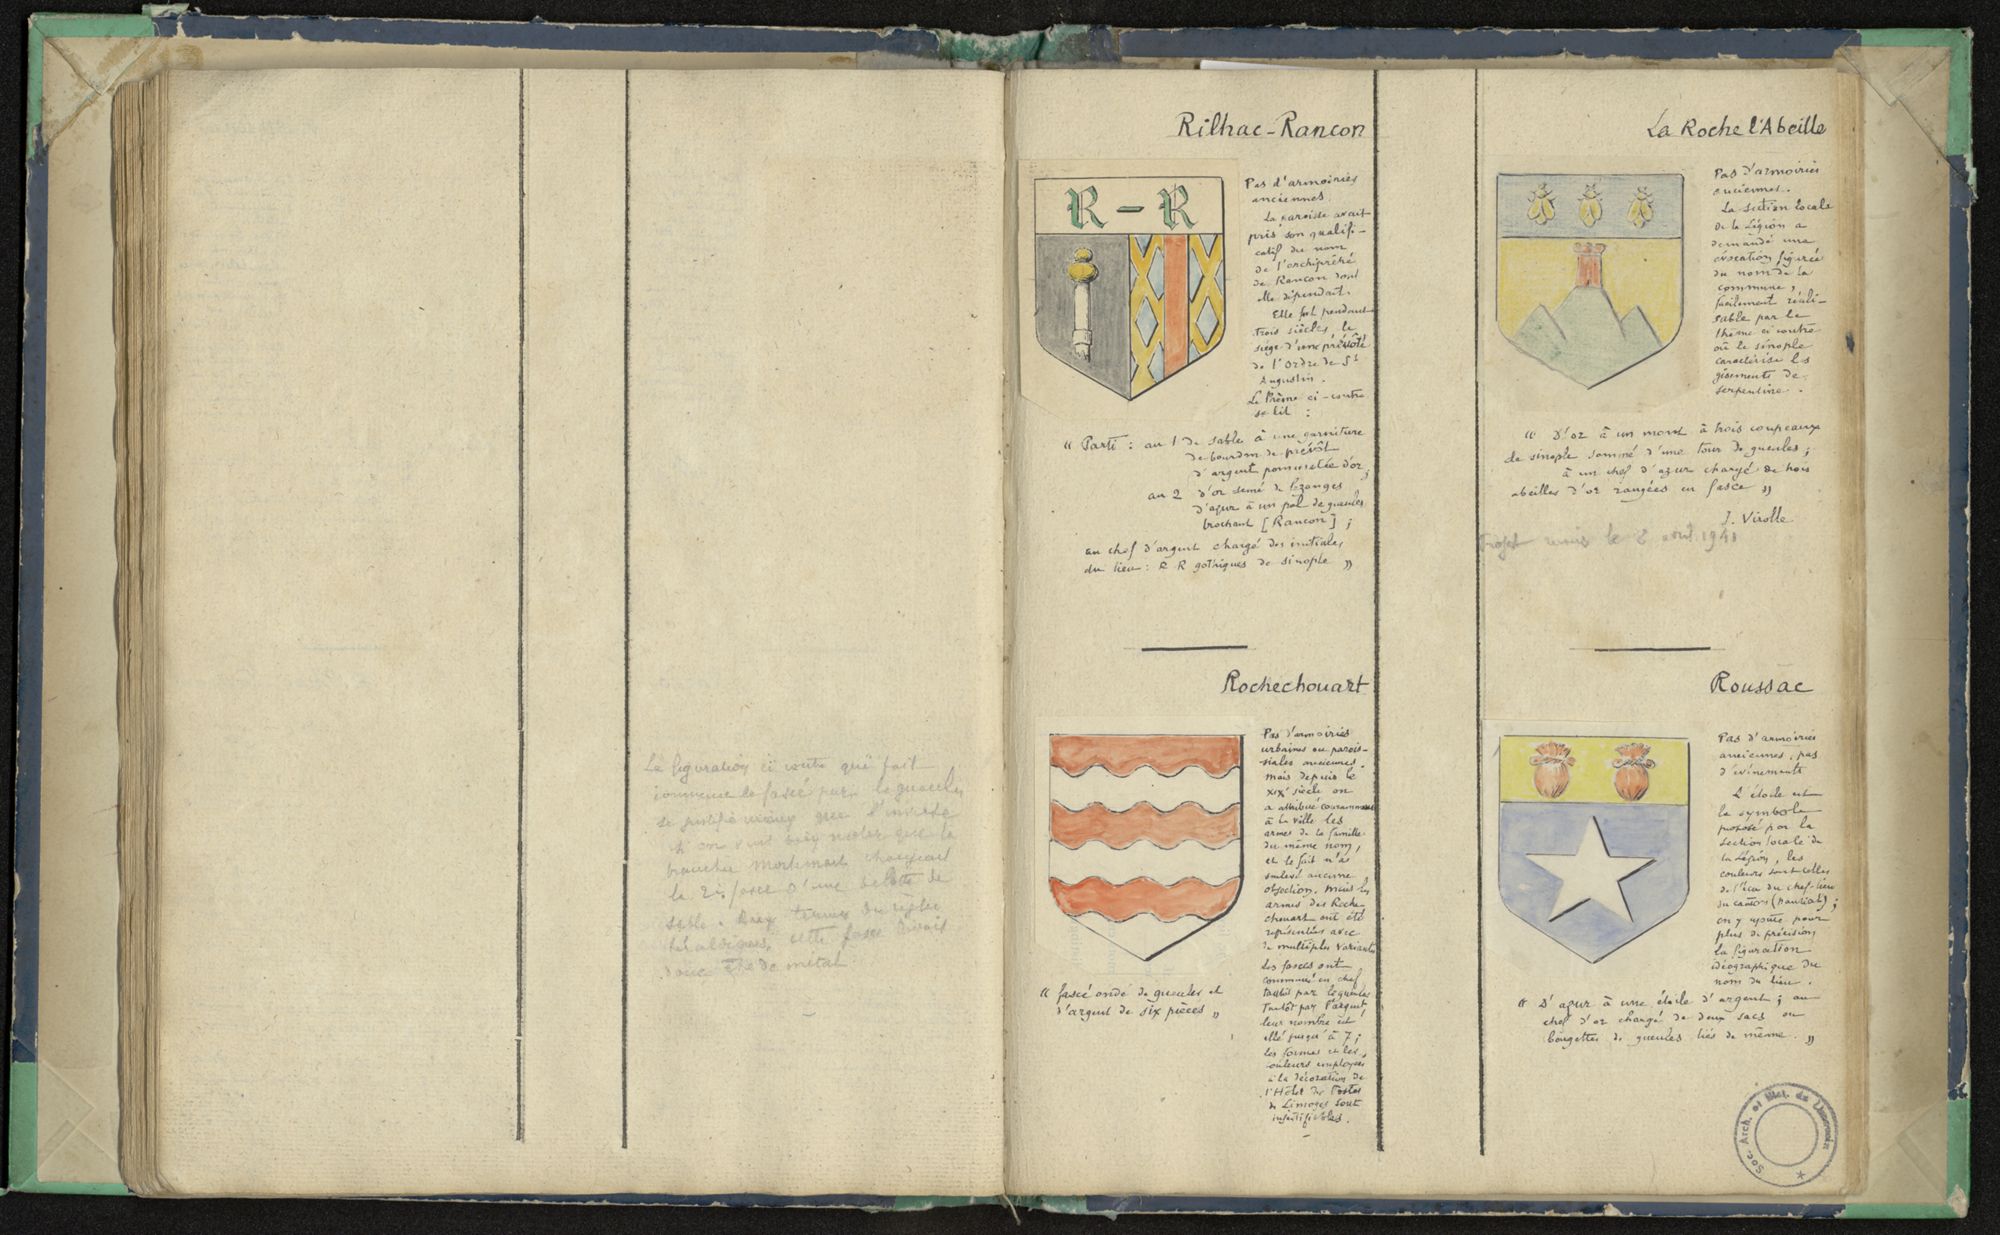 La figuration ci contre qui fait
commencer le fascé par le gueules
se justifie mieux que l'inverse
si on veut bien noter que la
branche Mortemart chargeait
la 2e fasce d'une de
sable. Aux termes des règles
héraldiques, cette fasce devait
donc être de métal.
Rilhac-Rancon
R - R
Pas d'armoiries
anciennes.
La paroisse avait
pris son qualifi-
catif du nom
de l'archiprêtré
de Rancon dont
elle dépendait.
Elle fut pendant
trois siècles, le
siège d'une prévôté
de l'Ordre de St
Augustin.
Le Thème ci-contre
se lit :
« Parti : au 1 de sable à une garniture
de bourdon de prévôt
d'argent pommetée d'or ;
au 2 d'or semé de lozanges
d'azur à un pal de gueules
brochant [Rancon] ;
au chef d'argent chargé des initiales
du lieu : R R gothiques de sinople »
La Roche l'Abeille
Pas d'armoiries
anciennes.
La section locale
de la Légion a
demandé une
évocation figurée
du nom de la
commune,
facilement réali-
sable par le
thème ci contre
où le sinople
caractérise les
gisements de
serpentine.
« D'or à un mont à trois coupeaux
de sinople sommé d'une tour de gueules ;
à un chef d'azur chargé de trois
abeilles d'or rangées en fasce »
J. Virolle
Projet remis le 8 avril 1943
Rochechouart
Pas d'armoiries
urbaines ou parois-
siales anciennes.
Mais depuis le
XIXe siècle on
a attribué couramment
à la ville les
armes de la famille
du même nom,
et le fait n'a
soulevé aucune
objection. Mais les
armes des Roche-
chouart ont été
représentées avec
de multiples variantes
Les fasces ont
commencé en chef
tantôt par le gueules
tantôt par l'argent,
leur nombre est
allé jusqu'à 7 ;
les formes et les
couleurs employées
à la décoration de
l'Hôtel des Postes
de Limoges sont
injustifiables.
« fascé ondé de gueules et
d'argent de six pièces »
Roussac
Pas d'armoiries
anciennes, pas
d'événements
L'étoile est
le symbole
proposé par la
section locale de
la Légion, les
couleurs sont celles
de l'écu du chef-lieu
du canton (Nantiat) ;
on y ajoute pour
plus de précision
la figuration
idéographique du
nom du lieu.
« D'azur à une étoile d'argent ; au
chef d'or chargé de deux sacs ou
bougettes de gueules liés de même. »
Soc. Arch. et Hist. du Limousin